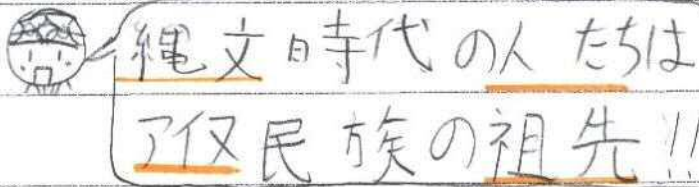 縄文時代の人たちは
アイヌ民族の祖先!!